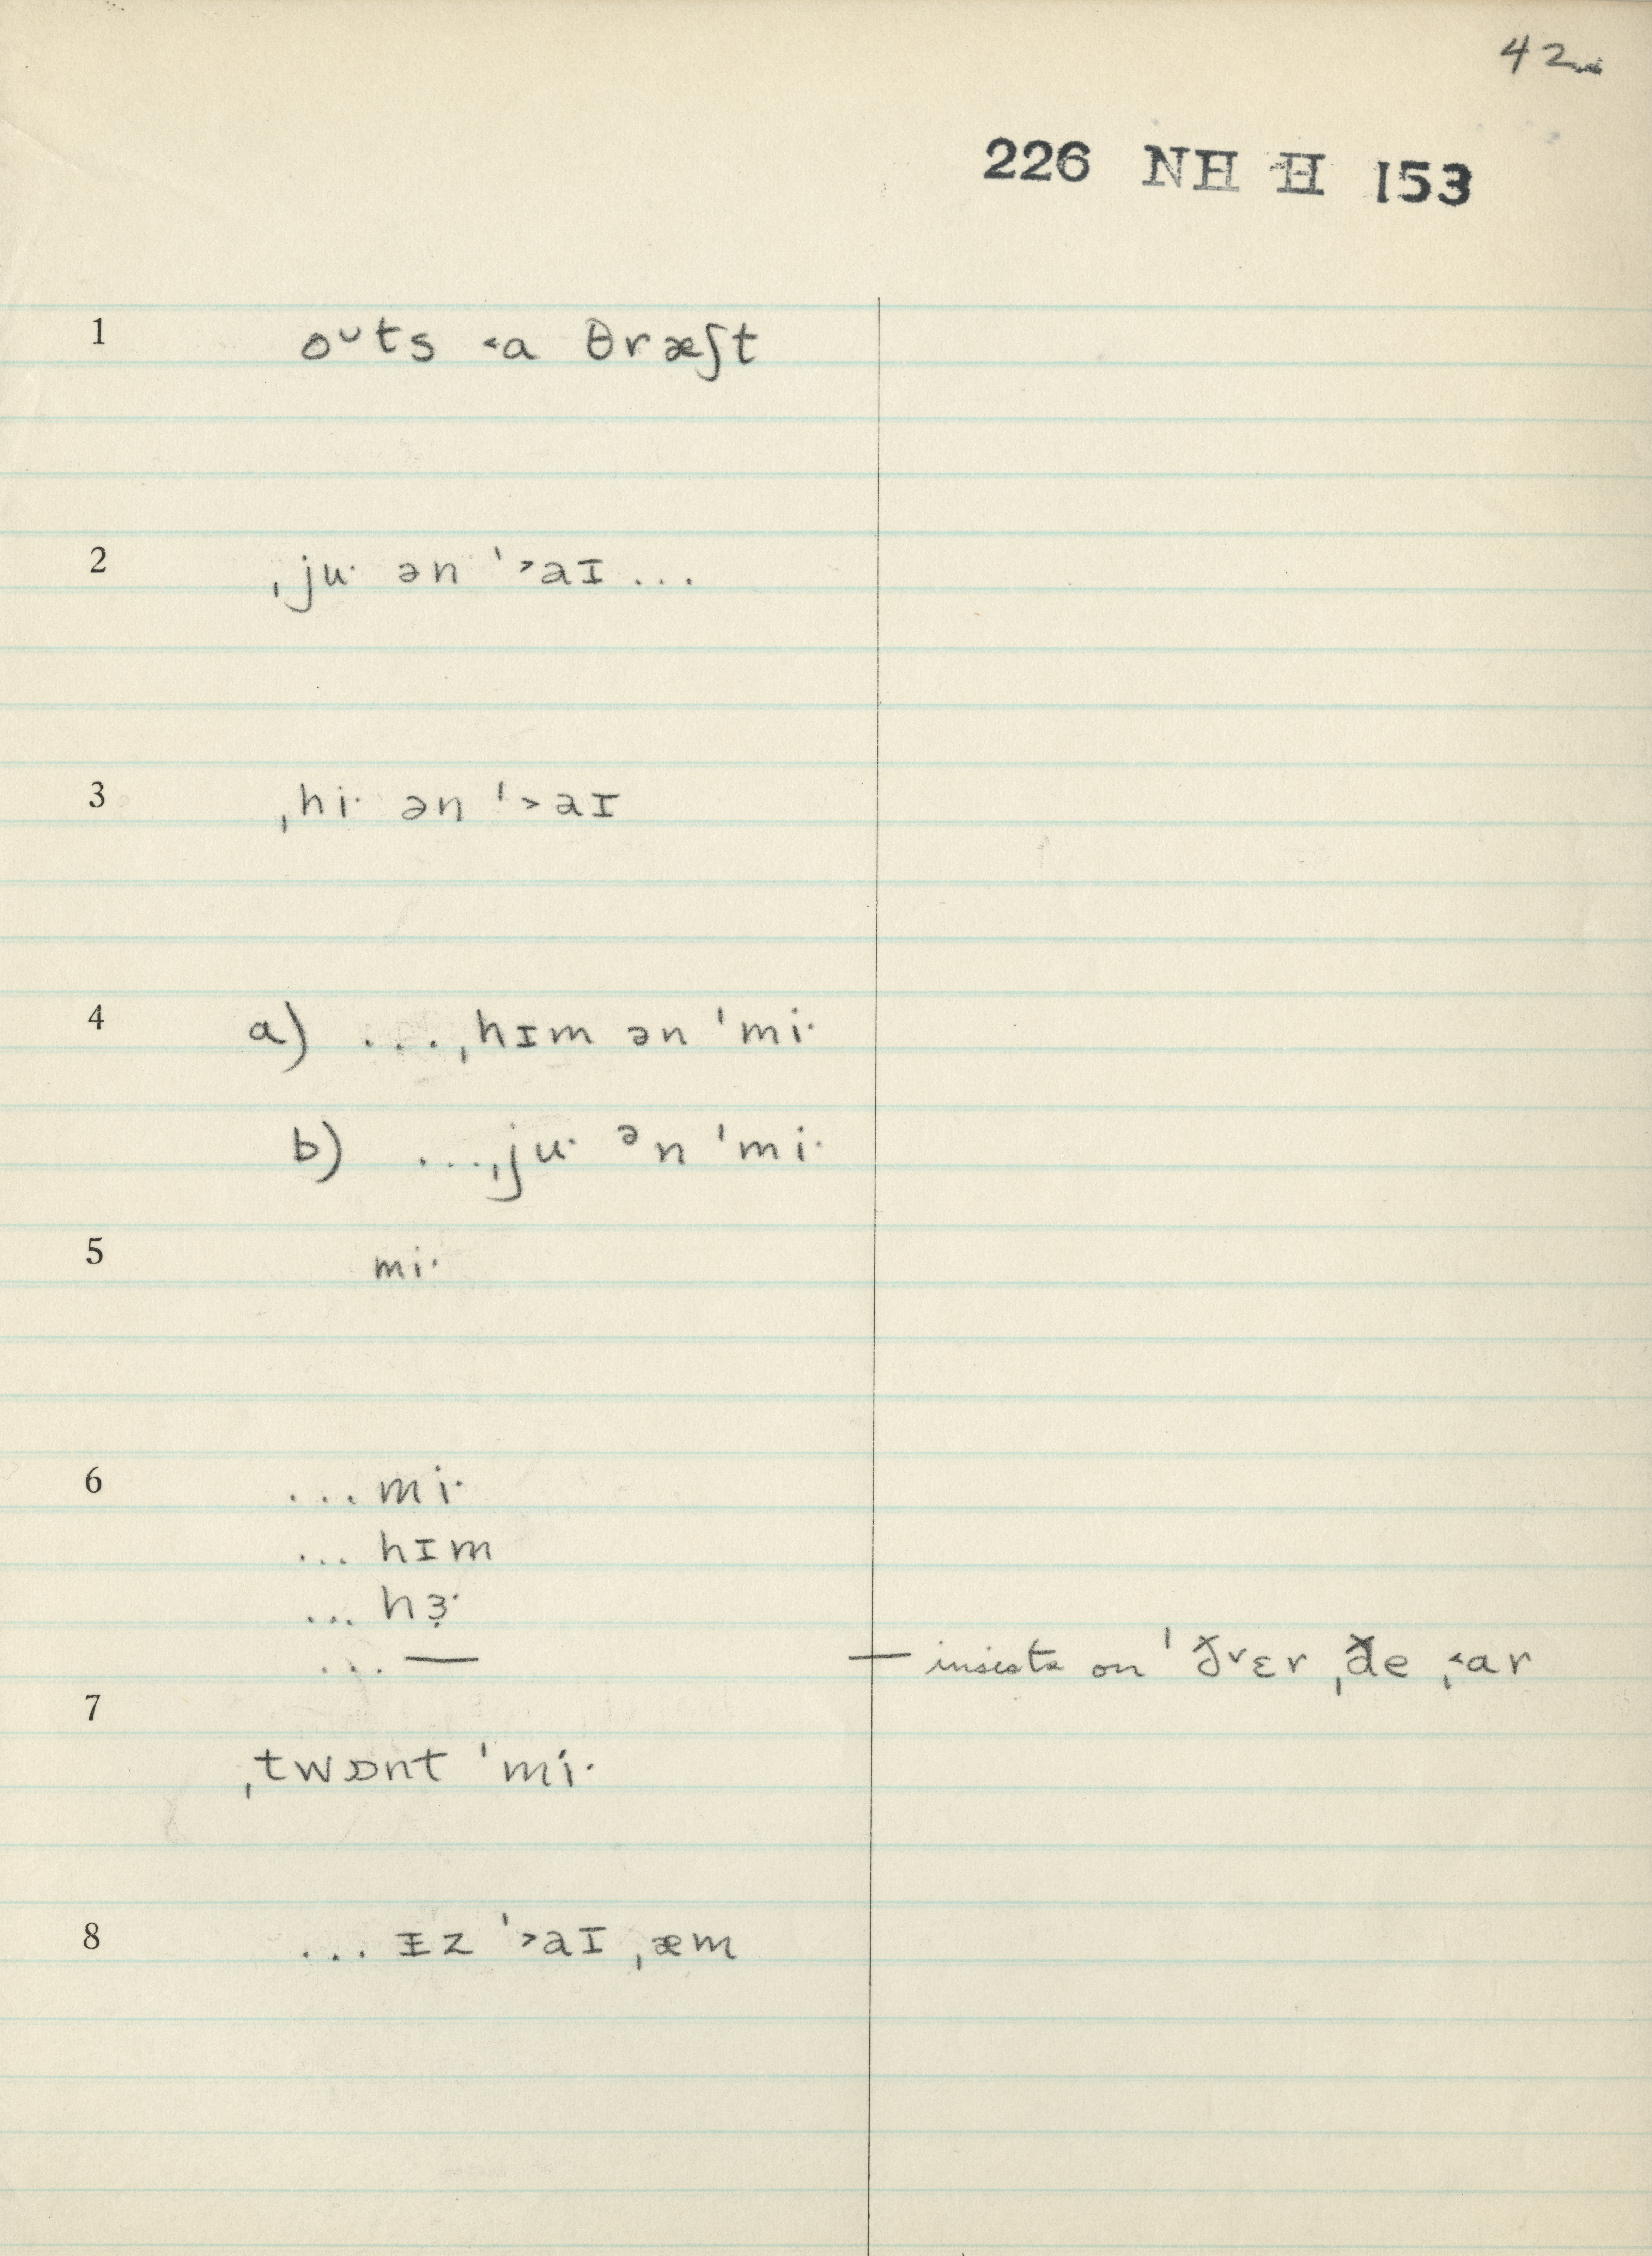 42
226 NH H 153
1 oᴗts ˂a θræʃt
2 ˌju· ən ˈ˃aɪ ...
3 ˌhi· ən ˈ˃aɪ
4 a) ... ˌhɪm ən ˈmi·
b) ... ˌju· ᵊn ˈmi·
5 mi·
6 ... mi·
... hɪm
... hɜ̣·
... — — insists on ˈðᵛɛr ˌðe ˌ˂ar
7
ˌtwɒnt ˈmi·
8 ... ɪz ˈ˃aɪ ˌæm